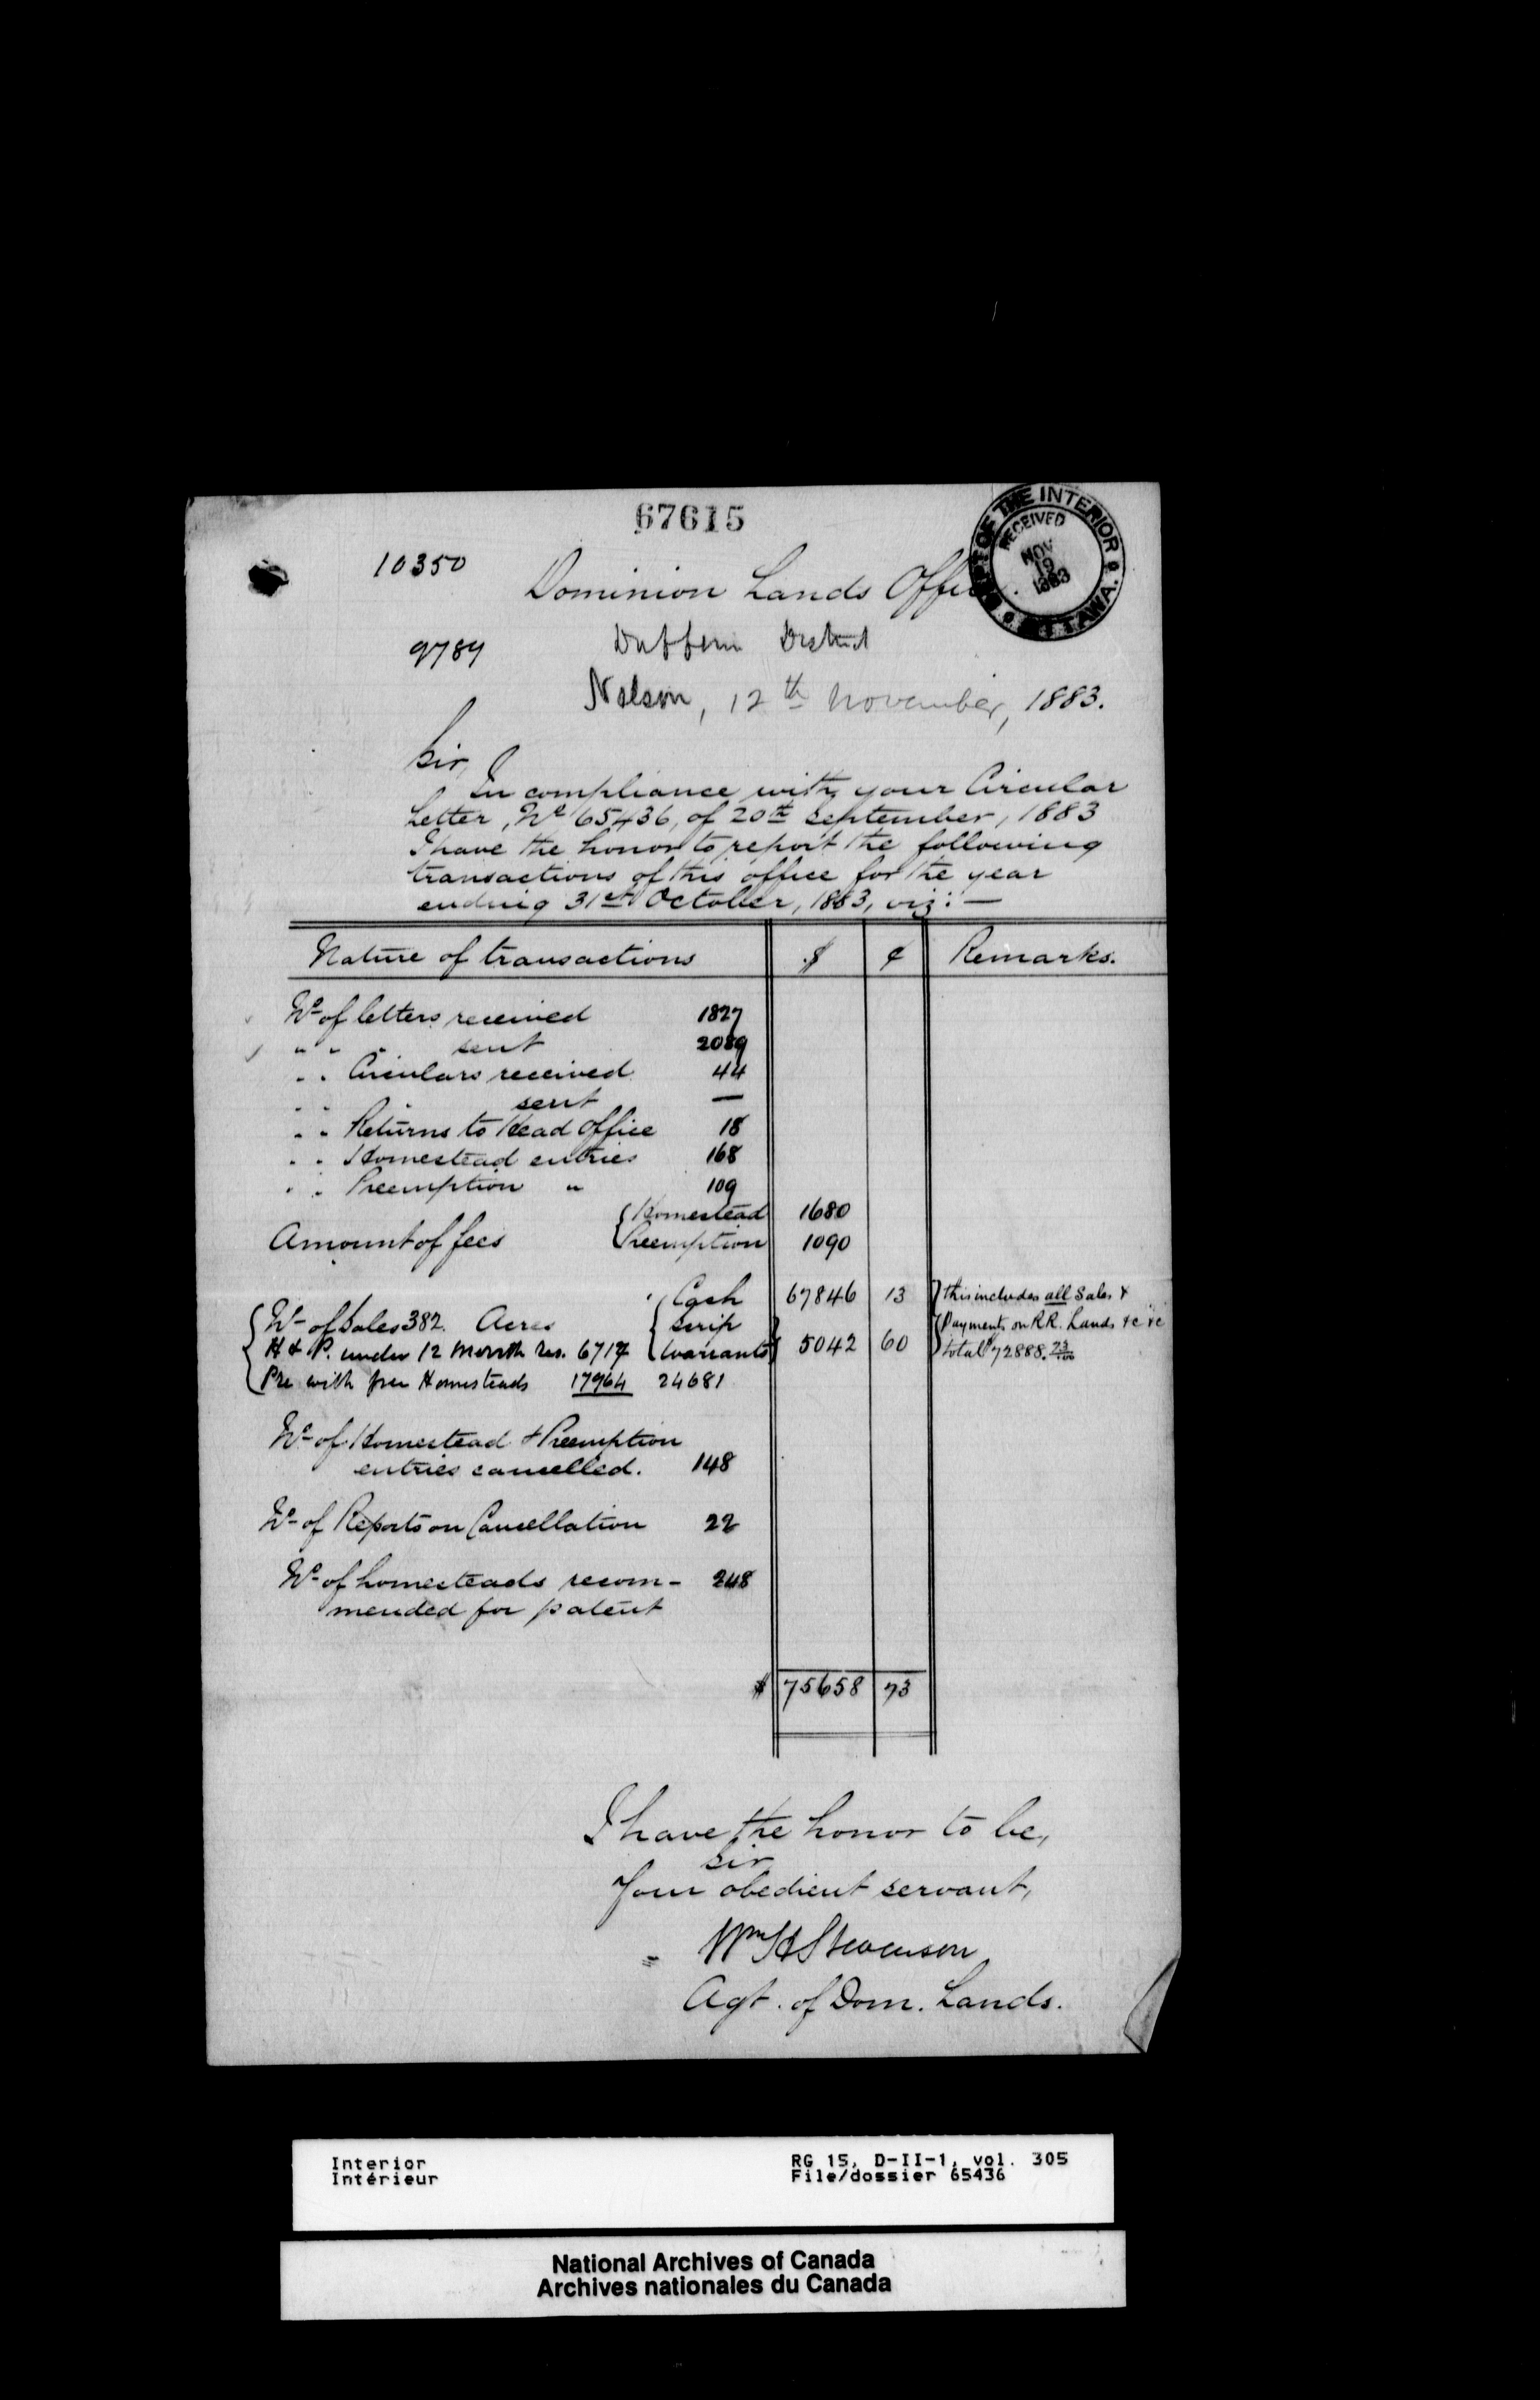 67615
DEPT OF THE INTERIOR
RECEIVED
NOV
19
1883
OTTAWA.
10350
Dominion Lands Office.
9789
Dufferin District
Nelson, 12th November, 1883.
Sir,
In compliance with your Circular
Letter, No 65436, of 20th September, 1883
I have the honor to report the following
transactions of this office for the year
ending 31st October, 1883, viz: —
Nature of transactions $ ¢ Remarks.
No of letters received 1827
" " " sent 2089
" " Circulars received 44
" " sent —
" " Returns to Head Office 18
" " Homestead entries 168
" " Preemption " 109
{ Homestead 1680
Amount of fees { Preemption 1090
{ Cash 67846 13 } this includes all Sales &
{ No of Sales 382. Acres { Scrip } } Payments on R.R. Lands &c &c
{ H & P. under 12 Month Res. 6717 { Warrants } 5042 60 } total $72888.73/100
{ Pre with free Homesteads 17964 24681
No of Homestead & Preemption
entries cancelled. 148
No of Reports on Cancellation 22
No of homesteads recom- 248
mended for patent
$ 75658 73
I have the honor to be,
Sir
Your obedient servant,
Wm H Stevenson
Agt. of Dom. Lands.
Interior RG 15, D-II-1, vol. 305
Intérieur File/dossier 65436
National Archives of Canada
Archives nationales du Canada